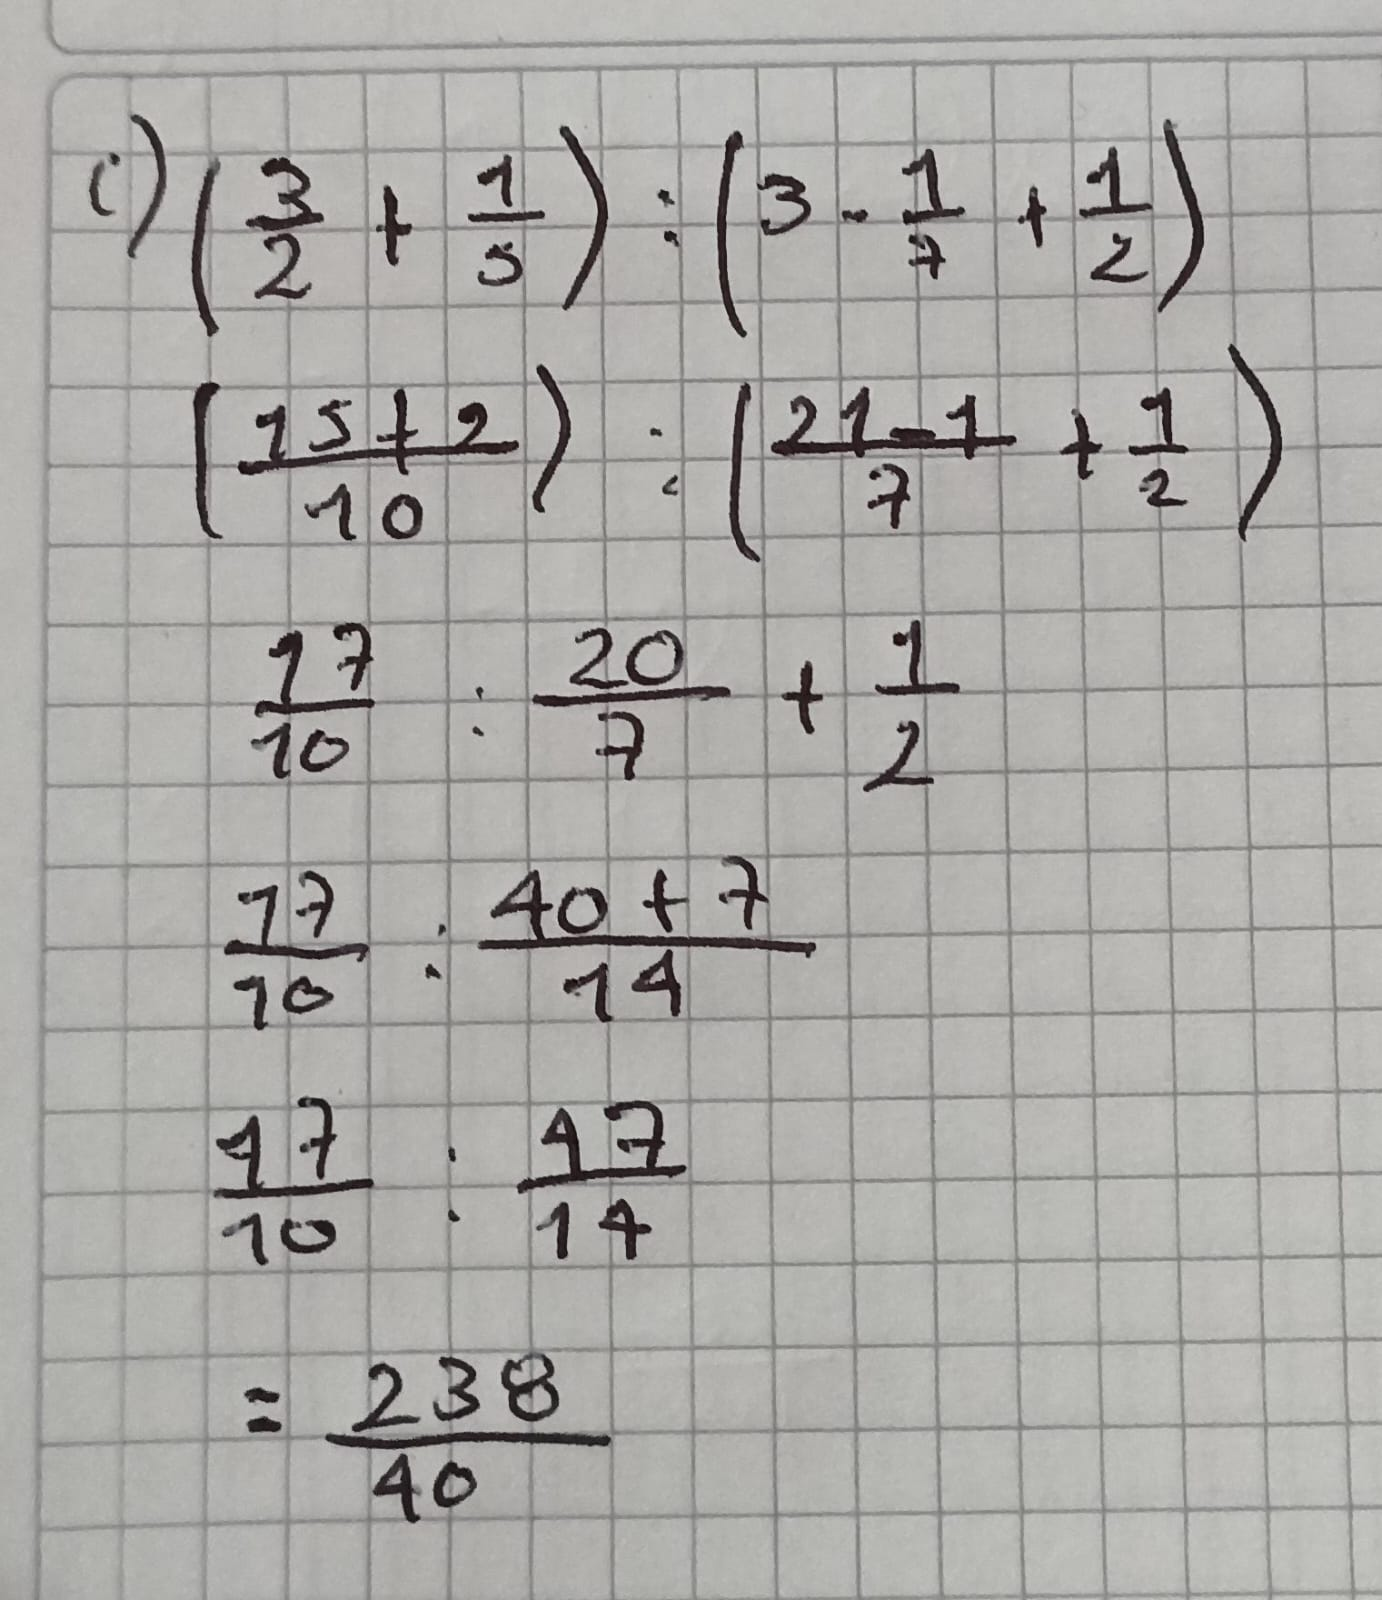 c) (3/2 + 1/5) : (3 - 1/7 + 1/2)
((15+2)/10) : ((21-1)/7 + 1/2)
17/10 : 20/7 + 1/2
17/10 : (40+7)/14
17/10 : 47/14
= 238/40